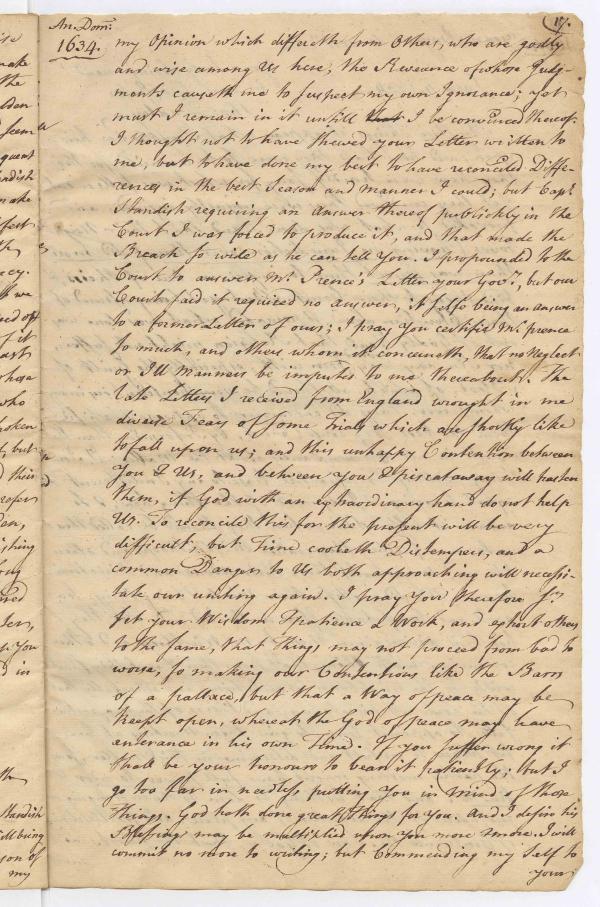 An. Dom:
1634.
17.
my Opinion which differeth from Others, who are godly
and wise among Us here, the Reverence of whose Judg-
ments causeth me to suspect my own Ignorance; yet
must I remain in it untill that I be convinced thereof.
I thought not to have shewed your Letter written to
me, but to have done my best to have reconciled Diffe-
rences in the best Season and manner I could; but Capt.
Standish requiring an answer thereof publickly in the
Court I was forced to produce it, and that made the
Breach so wide as he can tell You. I propounded to the
Court to answer Mr. Prence's Letter your Govr., but our
Court said it required no answer, it self being an answer
to a former Letter of ours; I pray You certifie Mr. prence
so much, and others whom it concerneth, that no Neglect
or Ill Manners be imputed to me thereabout. The
late Letters I received from England wrought in me
diverse Fears of some Trials which are shortly like
to fall upon us; and this unhappy Contention between
You & Us, and between You & piscataway will hasten
them, if God with an extraordinary hand do not help
Us. To reconcile this for the present will be very
difficult, but Time cooleth Distempers, and a
common Danger to Us both approaching will necessi-
tate our uniting again. I pray You therefore Sr.
set your Wisdom & patience a Work, and exhort others
to the same, that things may not proceed from bad to
worse, so making our Contentions like the Barrs
of a pallace, but that a Way of peace may be
keept open, whereat the God of peace may have
enterance in his own Time. If you suffer wrong it
shall be your honour to bear it patiently; but I
go too far in needless putting You in mind of these
things. God hath done great things for You. And I desire his
Blessings may be multiplied upon You more & more. I will
commit no more to writing; but Commending my Self to
your